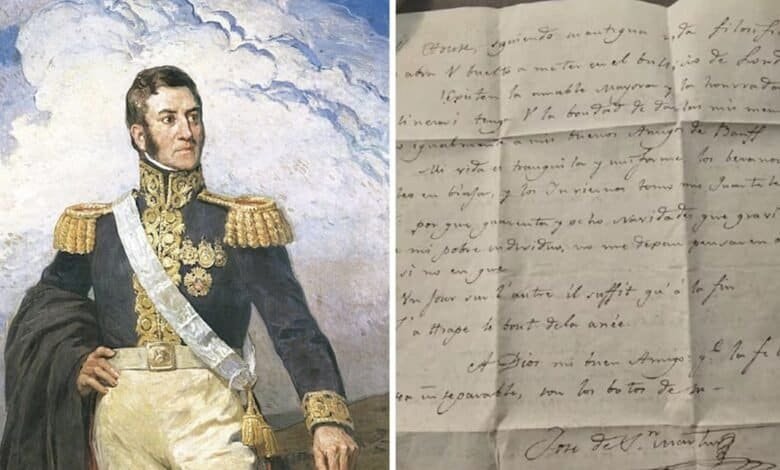 House, siguiendo mi antigua vida filosofi
abra V buelto a meter en el bullicio de Lond
la amable Mayora y la honrrada
tengo V la bondad de darles mis mem
igualmente a mis buenos Amigos de Banff
Mi vida es tranquila y uniforme los beranos
en biajar, y los Inviernos tomo mi Cuartel
por que quarenta y ocho Navidades que gravi
mi pobre individuo, no me dejan pensar en
si no en que
Un jour sur l'autre il suffit qu'à la fin
J'attrape le bout de la anée.
A Dios mi buen Amigo; qe. la fe
sea inseparable, son los botos de
José de Sn. Martin